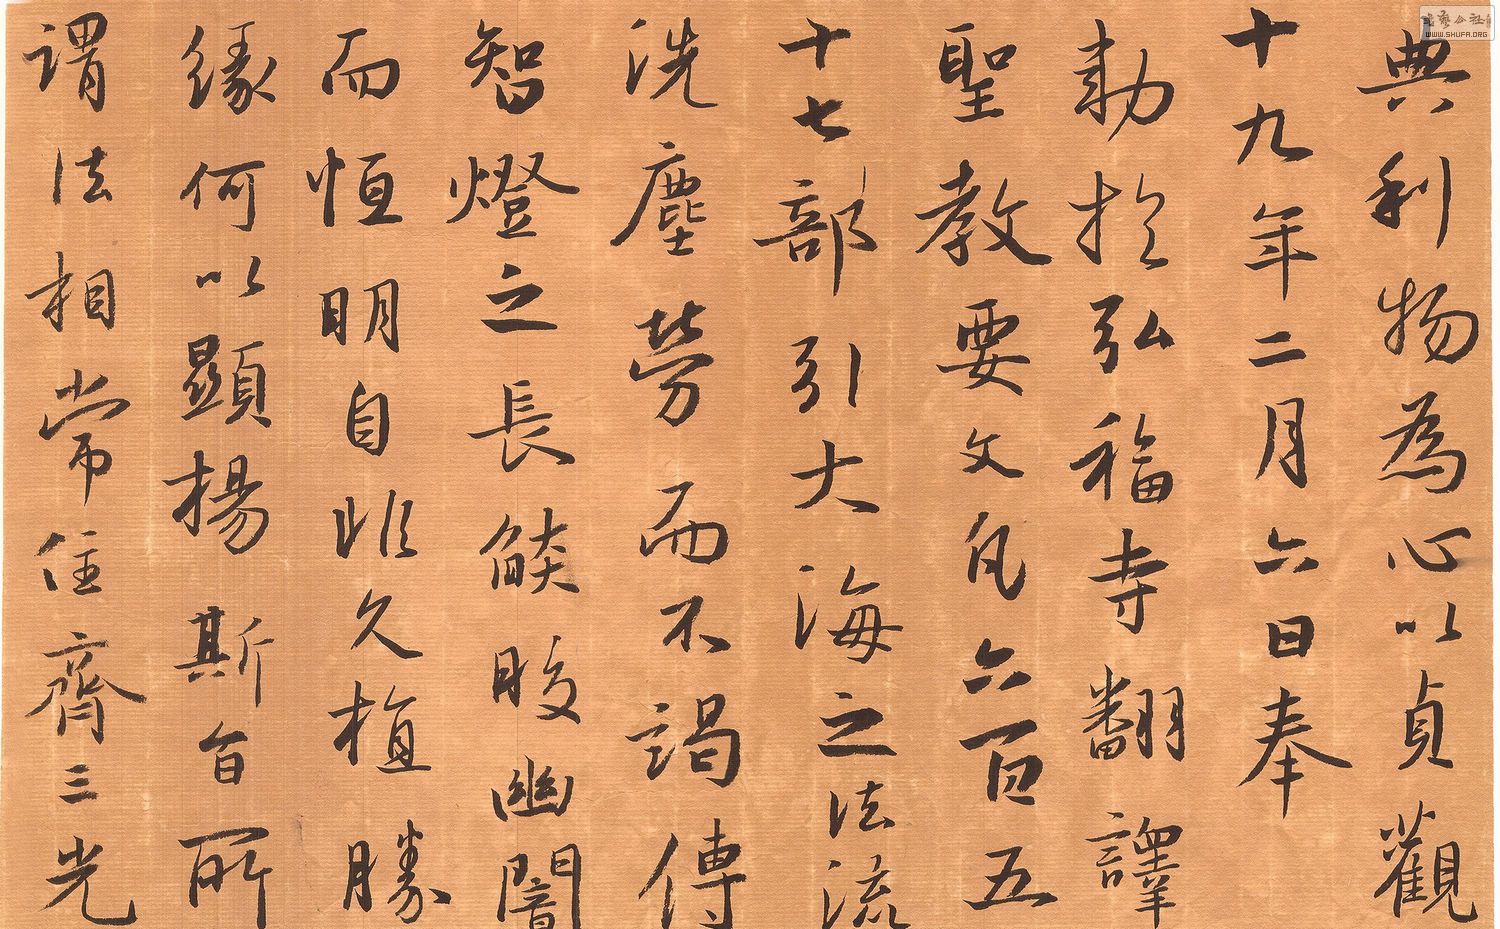 典利物為心以貞觀
十九年二月六日奉
勅於弘福寺翻譯
聖教要文凡六百五
十七部引大海之法流
洗塵勞而不竭傳
智燈之長燄皎幽闇
而恒明自非久植勝
緣何以顯揚斯旨所
謂法相常住齊三光
WWW.SHUFA.ORG